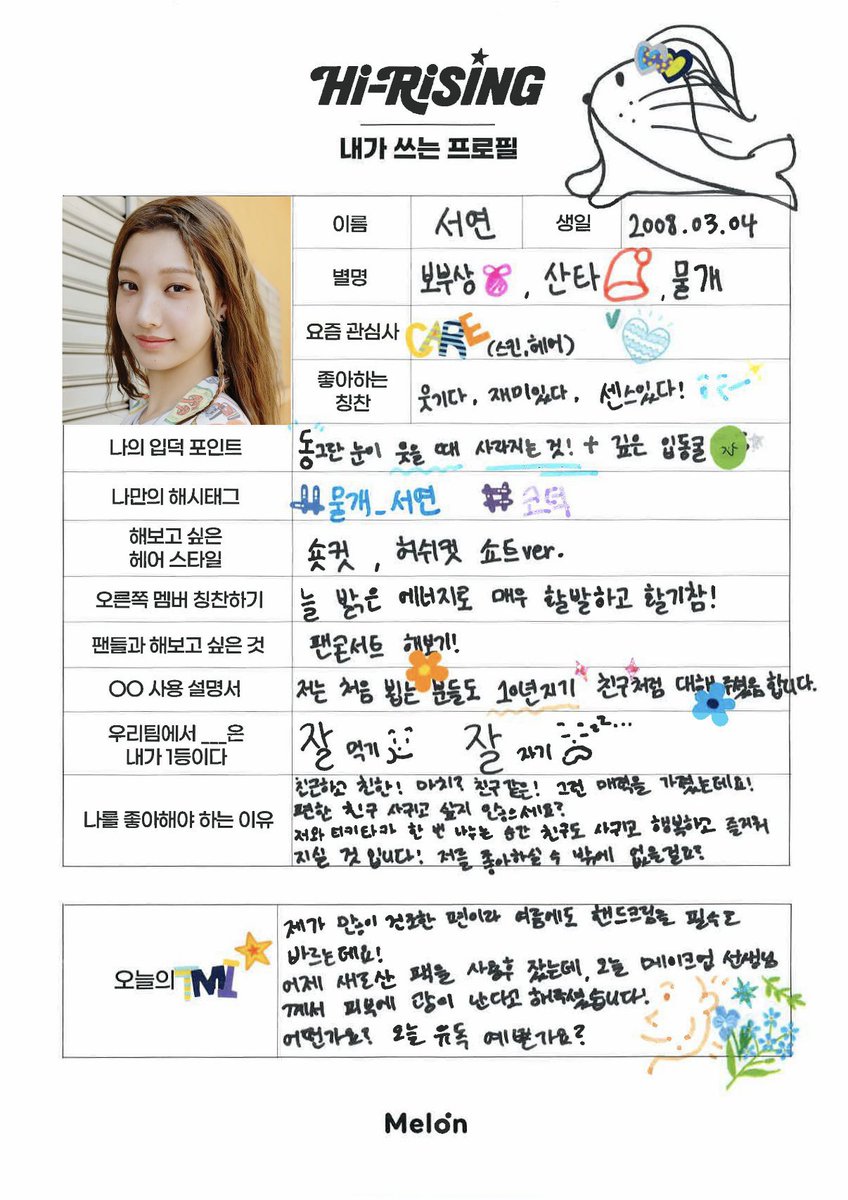 Hi-RiSiNG
내가 쓰는 프로필
이름 서연 생일 2008.03.04
별명 보부상, 산타, 물개
요즘 관심사 CARE (스킨,헤어)
좋아하는
칭찬
웃기다, 재미있다, 센스있다!
나의 입덕 포인트 동그란 눈이 웃을 때 사라지는 것! + 깊은 입동굴
나만의 해시태그 #물개_서연 #코덕
해보고 싶은
헤어 스타일
숏컷, 허쉬컷 쇼트ver.
오른쪽 멤버 칭찬하기 늘 밝은 에너지로 매우 활발하고 활기참!
팬들과 해보고 싶은 것 팬콘서트 해보기!
OO 사용 설명서 저는 처음 뵙는 분들도 10년지기 친구처럼 대해 합니다.
우리팀에서 ___은
내가 1등이다
잘 먹기 잘 자기 zzz...
나를 좋아해야 하는 이유
친근하고 친한! 마치? 친구같은! 그런 매력을 가졌는데요!
편한 친구 사귀고 싶지 않으세요?
저와 티키타카 한 번 나누는 순간 친구도 사귀고 행복하고 즐거워
지실 것 입니다! 저를 좋아하실 수 밖에 없을걸요?
오늘의 TMI
제가 손이 건조한 편이라 여름에도 핸드크림을 필수로
바르는데요!
어제 새로산 팩을 사용후 잤는데, 오늘 메이크업 선생님
께서 피부에 광이 난다고 해주셨습니다!
어떤가요? 오늘 유독 예쁜가요?
Melon